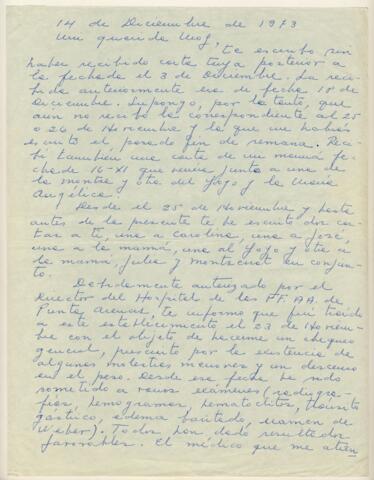 14 de Diciembre de 1973
Mi querida Moy,
te escribo sin
haber recibido carta tuya posterior a
la fechada el 3 de Diciembre. La reci-
bida anteriormente era de fecha 18 de
Diciembre. Supongo, por lo tanto, que
aún no recibo la correspondiente al 25
o 26 de Noviembre y la que me habías
escrito el pasado fin de semana. Reci-
bí también una carta de mi mamá fe-
chada 16-XI que venía junto a una de
la Montse y otra del Yoyo y la María
Angélica.
Desde el 25 de Noviembre y hasta
antes de la presente te he escrito dos car-
tas a ti, una a Carolina, una a José,
una a la mamá, una al Yoyo y otra a
la mamá Julia y Montserrat en conjun-
to.
Debidamente autorizado por el
Director del Hospital de las FF.AA. de
Punta Arenas, te informo que fui traído
a este establecimiento el 23 de Noviem-
bre con el objeto de hacerme un chequeo
general, prescrito por la existencia de
algunas molestias menores y un descenso
en el peso. Desde esa fecha he sido
sometido a varios exámenes (radiogra-
fías, hemogramas, hematocritos,
gástrico, edema baritado, examen de
Weber). Todos han dado resultados
favorables. El médico que me atien